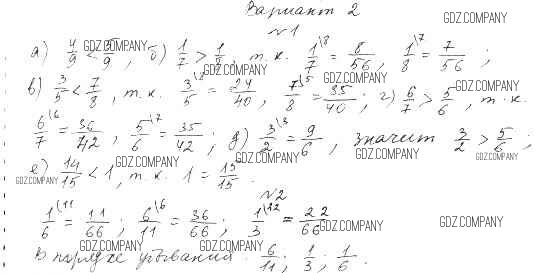 Вариант 2
№1
а) 4/9 < 5/9, б) 1/7 > 1/8, т.к. 1\8/7 = 8/56, 1\7/8 = 7/56;
в) 3/5 < 7/8, т.к. 3\8/5 = 24/40, 7\5/8 = 35/40; г) 6/7 > 5/6, т.к.
6\6/7 = 36/42, 5\7/6 = 35/42; д) 3\3/2 = 9/6, значит 3/2 > 5/6;
е) 14/15 < 1, т.к. 1 = 15/15.
№2
1\11/6 = 11/66; 6\6/11 = 36/66; 1\22/3 = 22/66
В порядке убывания: 6/11; 1/3; 1/6.
GDZ.COMPANY
GDZ.COMPANY
GDZ.COMPANY
GDZ.COMPANY
GDZ.COMPANY
GDZ.COMPANY
GDZ.COMPANY
GDZ.COMPANY
GDZ.COMPANY
GDZ.COMPANY
GDZ.COMPANY
GDZ.COMPANY
GDZ.COMPANY
GDZ.COMPANY